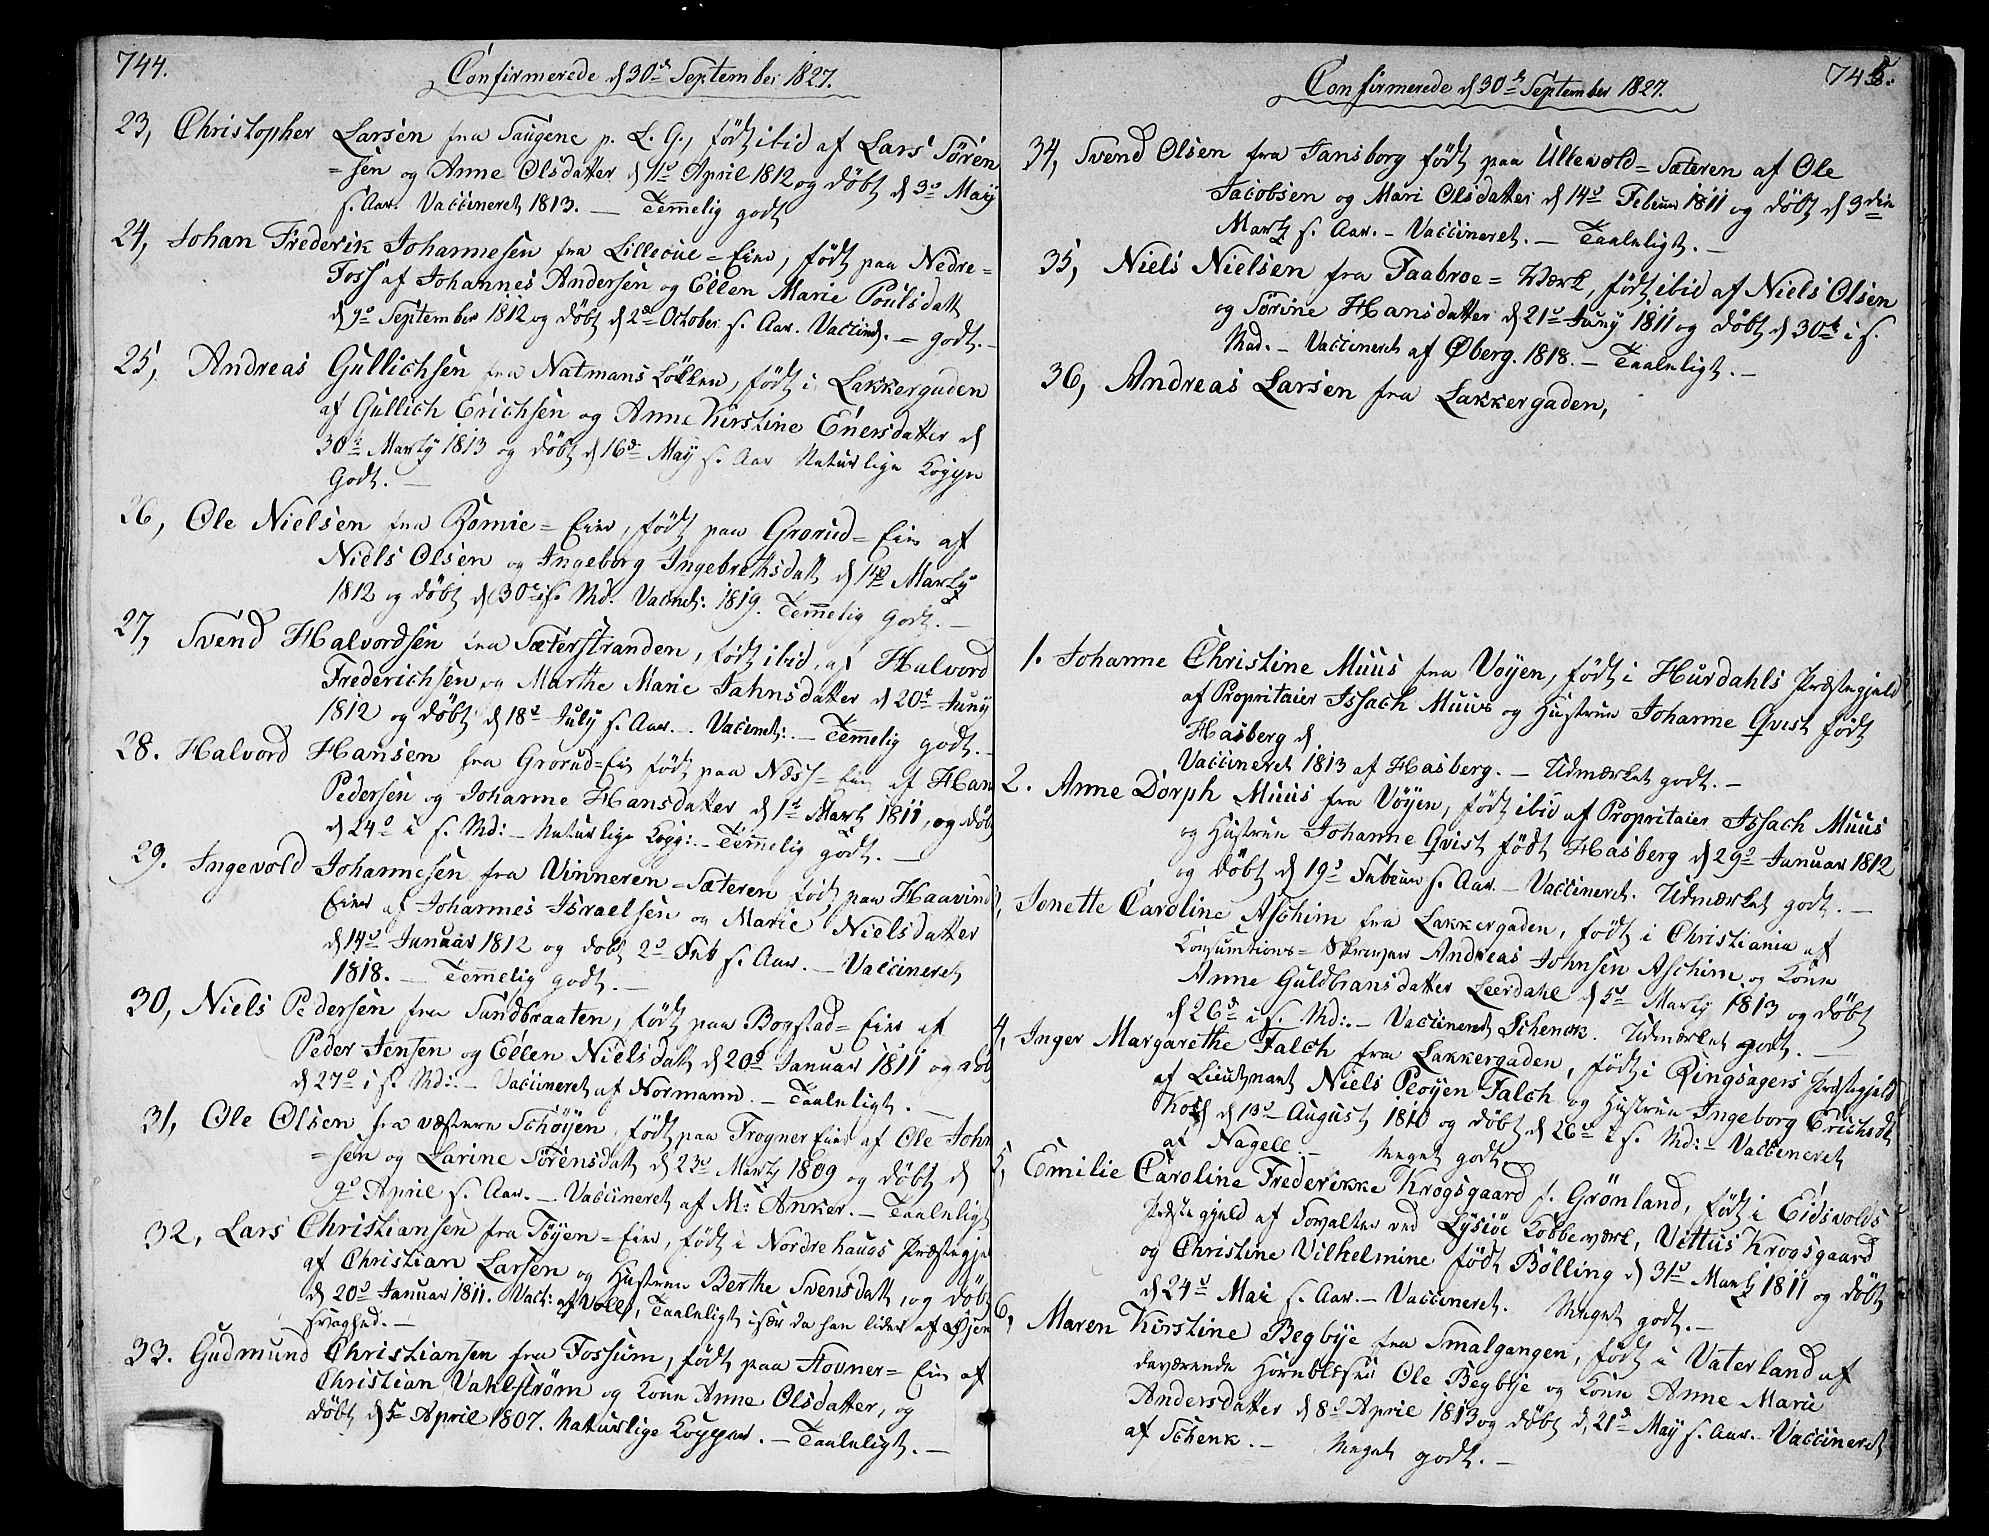 744.
Confirmerede d 30d September 1827.
23, Christopher Larsen fra Taugene p. L. G., født ibid af Lars Søren
=sen og Anne Olsdatter d 11d April 1812 og døbt d 3d May
s. Aar. Vaccineret 1813. — Temmelig godt
24, Johan Frederik Johannesen fra Lilleoue=Eier, født paa Nedre=
Foss af Johannes Andersen og Ellen Marie Poulsdatt
d 9d September 1812 og døbt d 2d October s. Aar. Vaccined. — godt. —
25, Andreas Gullichsen fra Natmans Løkken, født i Lakkergaden
af Gullich Erichsen og Anne Kirstine Enersdatter d
30t Martz 1813 og døbt d 16d May s. Aar Naturlige Kopper
Godt. —
26, Ole Nielsen fra Bomie=Eier, født paa Grorud=Eie af
Niels Olsen og Ingeborg Ingebrethsdatt d 14d Martz
1812 og døbt d 30t i s. Md. Vaccnet: 1819. Temmelig Godt. —
27, Svend Halvordsen fra Sæterstranden, født ibid, af Halvord
Frederichsen og Marthe Marie Jahnsdatter d 20t Juny
1812 og døbt d 18d July s. Aar. — Vaccinet: — Temmelig godt. —
28. Halvord Hansen fra Grorud=Eie født paa Næss=Eie af Han
Pedersen og Johanne Hansdatter d 1t Martz 1811, og døb
d 24d i s. Md: — Naturlige Kopp: — Temmelig godt. —
29. Ingevold Johannesen fra Vinneren=Sæteren født paa Haavind
Eier af Johannes Israelsen og Marie Nielsdatter
d 14d Januar 1812 og døbt 2d Feb s. Aar. — Vaccineret
1818. — Temmelig godt. —
30, Niels Pedersen fra Sandbraaten, født paa Bogstad=Eier af
Peder Jensen og Ellen Nielsdatt d 20d Januar 1811 og døb
d 27d i s. Md: — Vaccineret af Normann. — Taaleligt. —
31, Ole Olsen fra væstere Schøyen, født paa Frogner Eier af Ole John
=sen og Larine Sørensdatt d 23d Martz 1809 og døbt d
9d April s. Aar. — Vaccineret af M: Anker. — Taaleligt
32, Lars Christiansen fra Tøyen=Eier, født i Nordrehaugs Præstegje
af Christian Larsen og Hustrue Berthe Svensdatt, og døbt
d 20d Januar 1811. Vacc: af Voll, Taaleligt især da han lider af Øjen
svaghed. —
33. Gudmund Christiansen fra Fossum, født paa Hovner=Eie af
Christian Vahlstrøm og Kone Anne Olsdatter, og
døbt d 5t April 1807. Naturlige Kopper. — Taaleligt. —
745.
Confirmerede d 30d September 1827.
34, Svend Olsen fra Jansborg født paa Ullevold=Sæteren af Ole
Jacobsen og Mari Olsdatter d 14d Februar 1811 og døbt d 3die
Martz s. Aar. — Vaccineret. — Taaleligt. —
35, Niels Nielsen fra Taabroe=Værk, født ibid af Niels Olsen
og Sørine Hansdatter d 21d Juny 1811 og døbt d 30t i s.
Mad. — Vaccineret af Øberg. 1818. — Taaleligt. —
36, Andreas Larsen fra Lakkergaden,
1. Johanne Christine Muus fra Vøyen, født i Hurdahls Præstegjeld
af Propritaier Issach Muus og Hustrue Johanne Qvist født
Hasberg d.
Vaccineret 1813 af Hasberg. — Udmærket godt. —
2. Anne Dorph Muus fra Vøyen, født ibid af Propritaier Issach Muus
og Hustrue Johanne Qvist født Hasberg d 29d Januar 1812
og døbt d 19d Febuar s. Aar. — Vaccineret. Udmærket godt. —
3, Jonette Caroline Aschim fra Lakkergaden, født i Christiania af
Konsumtions= Andreas Johnsen Aschim og Kone
Anne Guldbransdatter Leerdahl d 5d Martz 1813 og døbt
d 26d i s. Md: — Vaccineret Schenck. Udmærket godt. —
4, Inger Margarethe Falch fra Lakkergaden, født i Ringsagers Præstegjeld
af Lieutnant Niels Ploijen Falch og Hustrue Ingeborg Erichsdt
d 13d August 1810 og døbt d 26d i s. Md: — Vaccineret
af Nagell. — Meget godt.
5, Emilie Caroline Frederikke Krogsgaard f. Grönland, født i Eidsvolds
Præstegjeld af Forvalter ved Lysiøe Kobberværk, Vittus Krogsgaard
og Christine Vilhelmine født Bölling d 31d Martz 1811 og døbt
d 24d Mai s. Aar. — Vaccineret. Meget godt. —
6, Maren Kirstine Begbye fra Smalgangen, født i Vaterland af
daværende Hornblæser Ole Begbye og Kone Anne Marie
Andersdatter d 8d April 1813 og døbt d 21d May s. Aar. — Vaccineret
af Schenk. — Meget godt. —